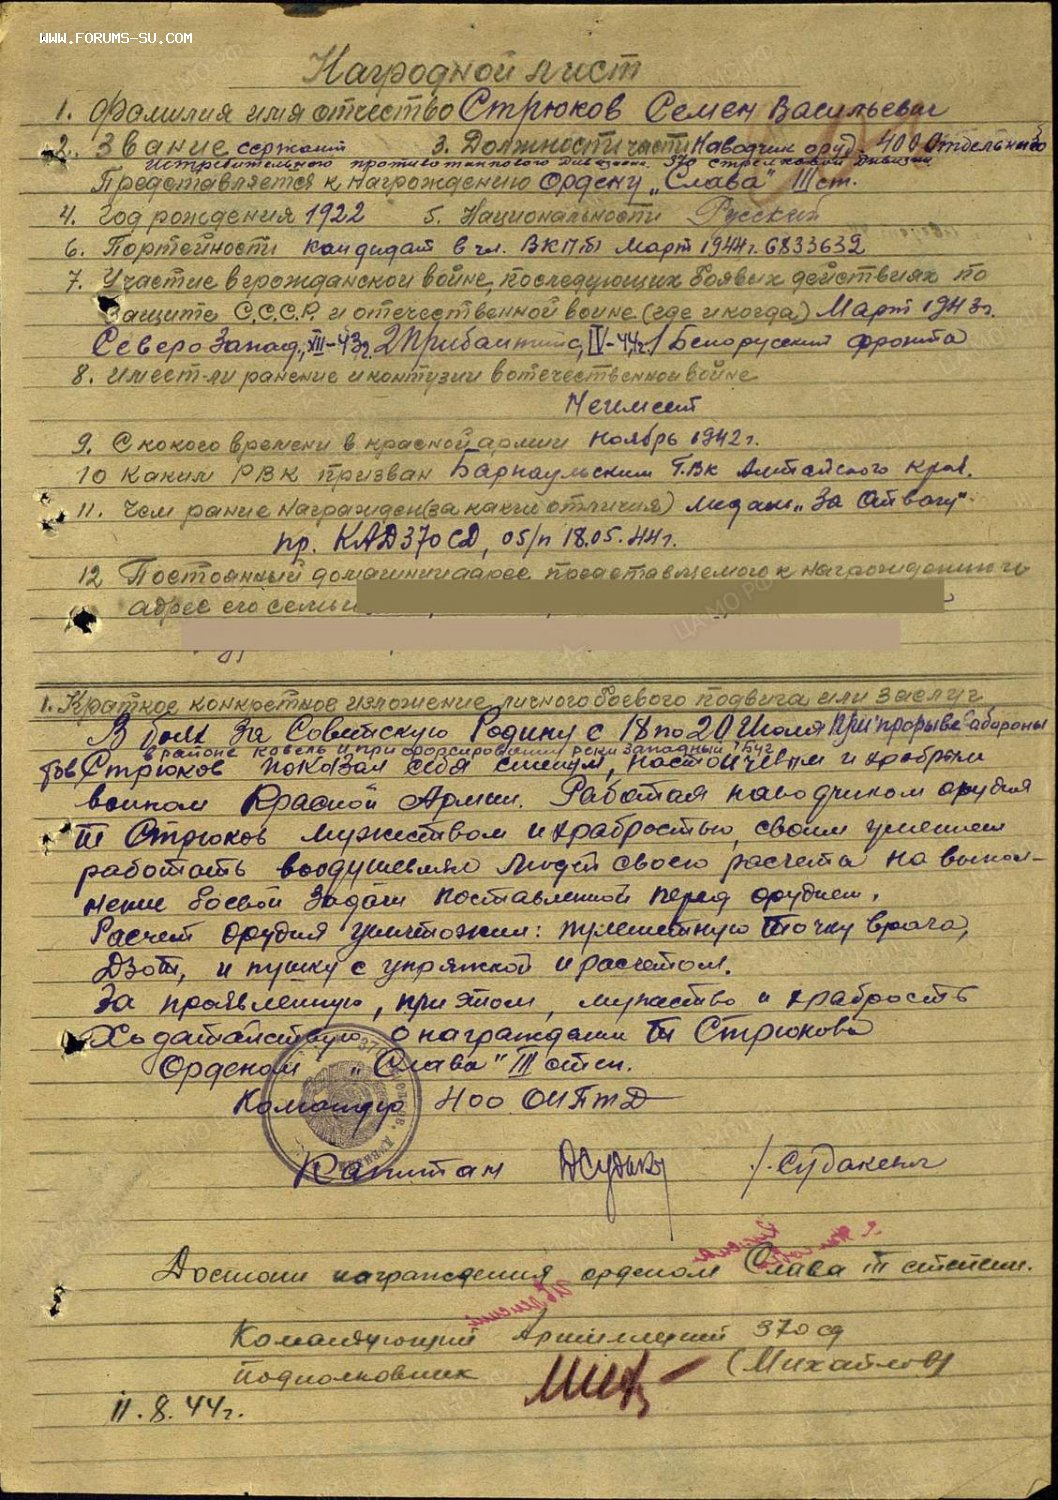 WWW.FORUMS-SU.COM
Наградной лист
1. Фамилия имя отчество Стрюков Семен Васильевич
2. Звание сержант 3. Должность части Наводчик оруд. 400 Отдельного
Истребительного противотанкового Дивизиона 370 стрелковой Дивизии
Представляется к награждению Ордену „Слава" III ст.
4. Год рождения 1922 5. Национальности Русский
6. Портейности кандидат в чл. ВКП(б) Март 1944г. 6833639
7. Участие в гражданской войне, последующих боевых действиях по
защите С.С.С.Р. и отечественной воине (где и когда) Март 1943г.
Северо Запад., XII-43г. 2 Прибалтийс, IV-44г. 1 Белорусский фронта
8. имеет-ли ранение и контузии в отечественной войне
Неимеет
9. С кокого времени в красной армии ноябрь 1942г.
10 Каким РВК призван Барнаульским ГВК Алтайского края.
11. Чем рание награжден (за какие отличия) медаль „За Отвагу"
пр. КАД 370 СД, 05/п 18.05.44г.
12 Постоянный домашний адрес представляемого к награждению и
адрес его семьи
1. Краткое конкретное изложение личного боевого подвига или заслуг
В боях За Советскую Родину с 18 по 20 Июля при прорыве обороны
в районе Ковель и при форсировании реки Западный Буг
тов Стрюков показал себя смелым, настойчевым и храбрым
воином Красной Армии. Работая наводчиком орудия
т Стрюков мужеством и храбростью, своим умением
работать воодушевлял людей своего расчета на выпол-
нение боевой Задачи поставленной перед орудием.
Расчет орудия уничтожил: пулеметную точку врага,
Дзот, и пушку с упряжкой и расчетом.
За проявленную, при этом, мужество и храбрость
Ходатайствую о награждении т Стрюкова
Орденом „Слава" III степ.
Командир 400 ОИПТД
Капитан /. Судакевич
Достоин награждения орденом Слава III степени.
Командующий Артиллерией 370 сд
подполковник (Михайлов)
11.8.44г.